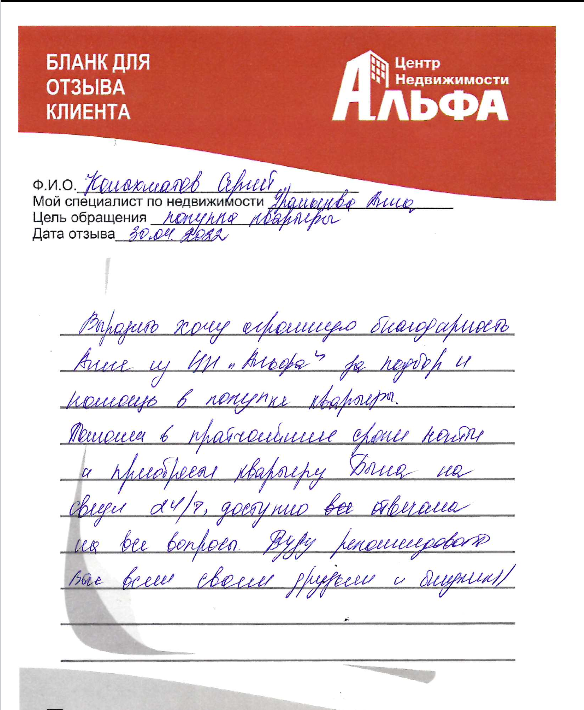 БЛАНК ДЛЯ
ОТЗЫВА
КЛИЕНТА
Центр
Недвижимости
АЛЬФА
Ф.И.О. Сергей
Мой специалист по недвижимости Анна
Цель обращения покупка квартиры
Дата отзыва 30.04.2022
Выразить хочу огромную благодарность
Анне из ЦН „Альфа“ за подбор и
помощь в покупке квартиры.
Помогла в кратчайшие сроки найти
и приобрести квартиру Была на
связи 24/7, доступно отвечала
на все вопросы. Буду рекомендовать
Вас всем своим друзьям и близким))